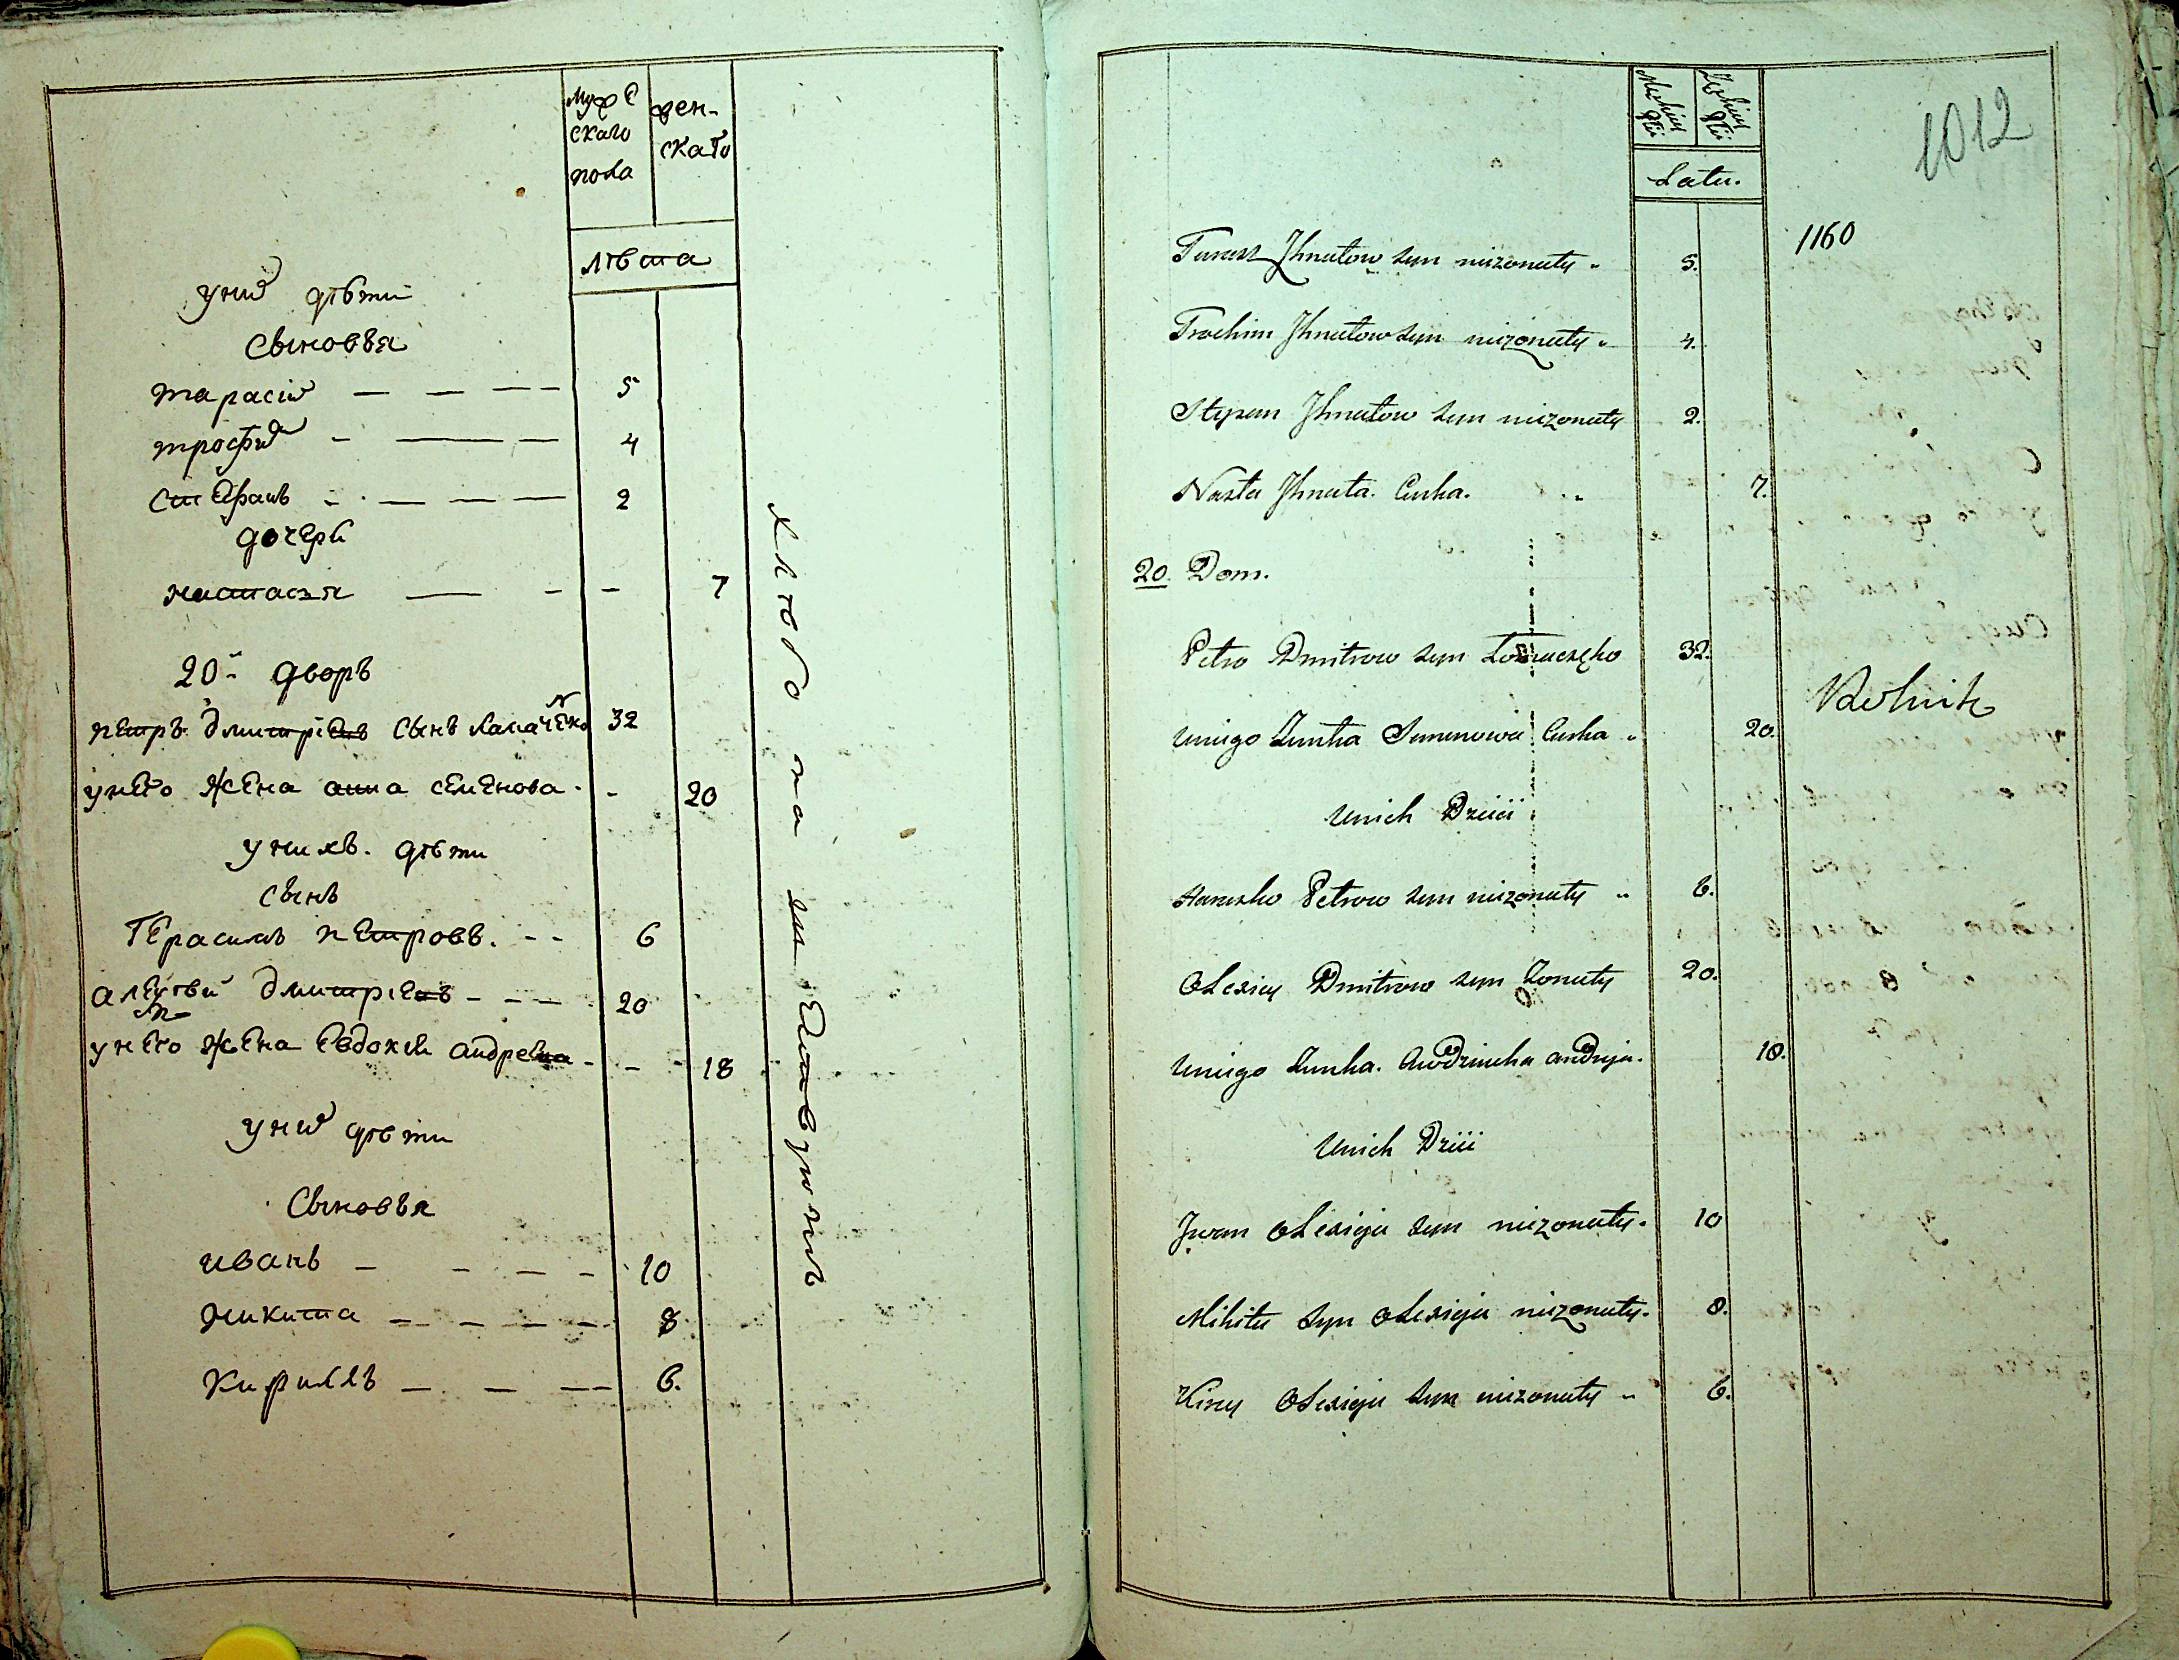 мужес
скаго
пола
жен-
скаго
лѣта
у них дѣти
сыновья
тарасій — — — — 5
трофим - — — 4
стефанъ - — — — 2
дочерь
настасья — - - 7
20й дворъ
петръ дмитріевъ сынъ 32
у него жена анна семенова. - 20
у нихъ. дѣти
сынъ
Герасимъ петровъ. - - 6
алексѣй дмитріевъ - - - - 20
у него жена Евдокія андреева - - - 18
у них дѣти
Сыновья
иванъ - - - - 10
Никита - - - - - 8
Кирилъ — — — 6.
хлебопашествующій
1012
Latu.
1160
Taras Ihnatow syn niezonaty 5.
Trochim Ihnatow syn niezonaty 4.
Stepan Ihnatow syn niezonaty 2.
Nasta Ihnata. Curka. 7.
20. Dom.
Petro Dmitrow syn 32.
Uniego Zunka Semenowa Curka 20.
Unich Dzieci
Harasko Petrow syn niezonaty 6.
Olexiey Dmitrow syn Zonaty 20.
Uniego Zunka. Andryja. 18.
Unich Dzici
Iwan Olexieja syn niezonaty. 10
Mikita syn Olexieja niezonaty. 8.
Kiryy Olexieja syn niezonaty 6.
Rolnik